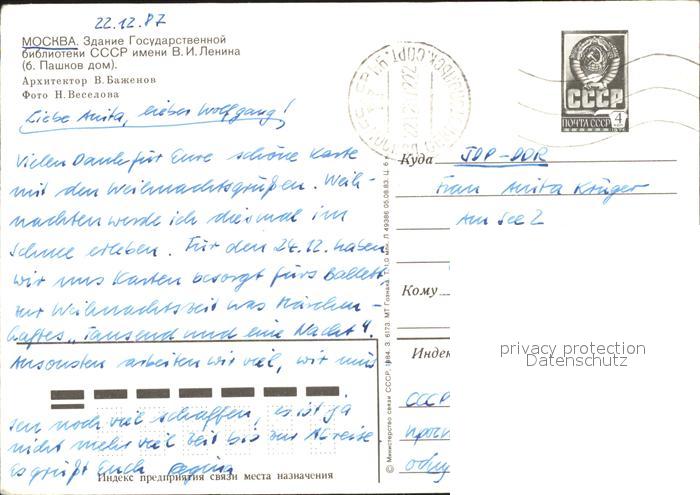 22.12.87
МОСКВА. Здание Государственной
библиотеки СССР имени В. И. Ленина
(б. Пашков дом).
Архитектор В. Баженов
Фото Н. Веселова
Liebe Anita, lieber Wolfgang!
Vielen Dank für Eure schöne Karte
mit den Weihnachtsgrüßen. Weih-
nachten werde ich diesmal im
Schnee erleben. Für den 24.12. haben
wir uns Karten besorgt fürs Ballett
zur Weihnachtszeit was Märchen-
haftes „Tausend und eine Nacht“.
Ansonsten arbeiten wir viel, wir müs
sen noch viel schaffen, es ist ja
nicht mehr viel Zeit bis zur Abreise.
Es grüßt Euch Regina
Индекс предприятия связи места назначения
© Министерство связи СССР. 1984. З. 6173. МТ Гознака. Л 49386 05.08.83. Ц.
СССР
ПОЧТА СССР 4
Куда
DDP-DDR
Frau Anita Krüger
Am See 2
Кому
Индек
СССР
privacy protection
Datenschutz